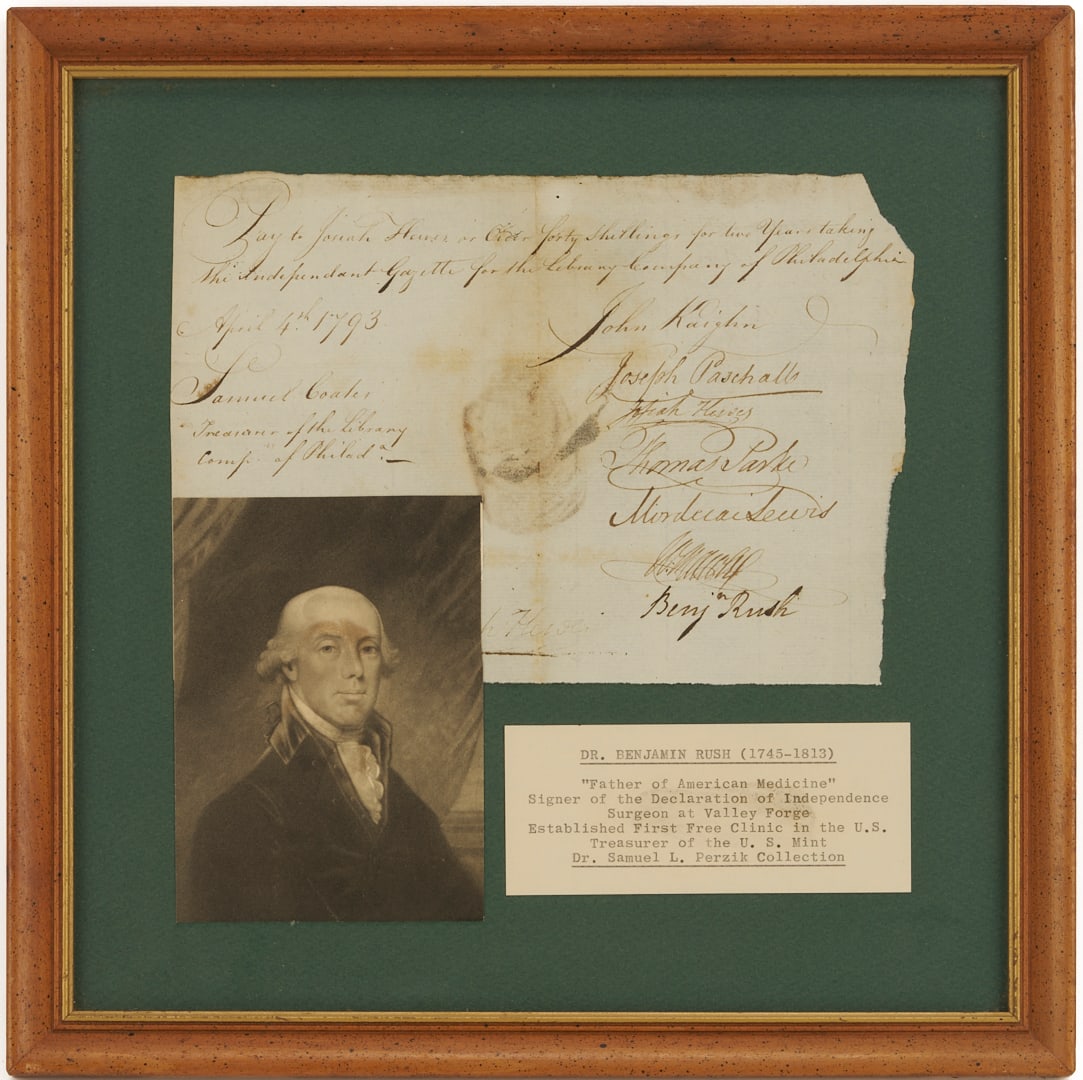 Pay to Josiah Hewes or Order forty shillings for two Years taking
the Independant Gazette for the Library Company of Philadelphia
April 4th. 1793
John Kaighn
Joseph Paschall
Samuel Coates
Josiah Hewes
Treasurer of the Library
Thomas Parke
Comp. of Philada.
Mordecai Lewis
Benjn Rush
h Hewes
DR. BENJAMIN RUSH (1745-1813)
"Father of American Medicine"
Signer of the Declaration of Independence
Surgeon at Valley Forge
Established First Free Clinic in the U.S.
Treasurer of the U. S. Mint
Dr. Samuel L. Perzik Collection